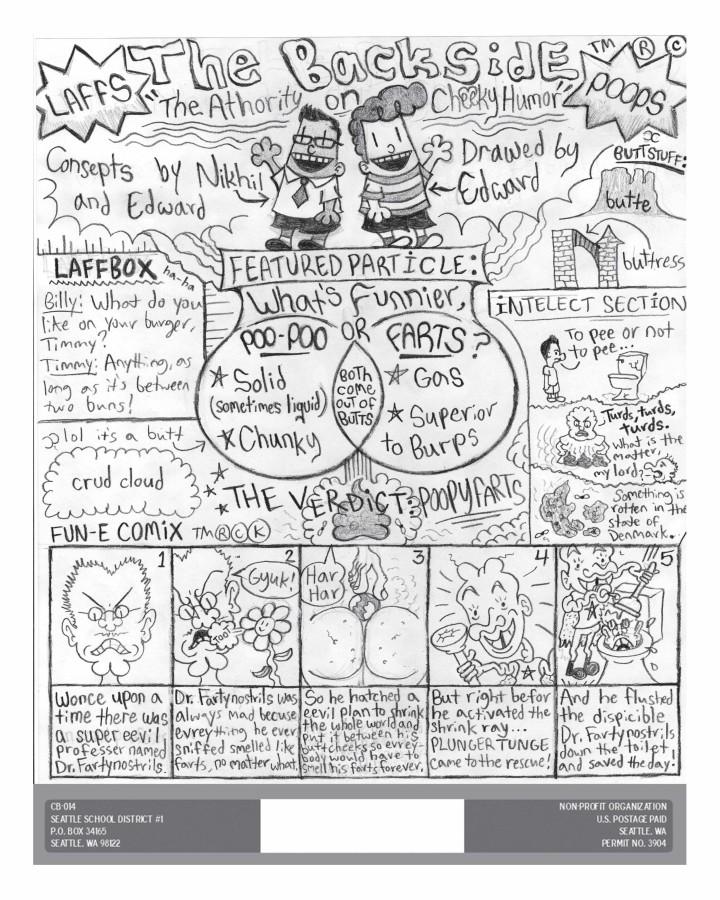 The Backside TM ® ©
LAFFS
POOPS
"The Athority on Cheeky Humor"
Consepts by Nikhil
and Edward
Drawed by
Edward
BUTTSTUFF:
butte
buttress
LAFFBOX ha-ha
Billy: What do you
like on your burger,
Timmy?
Timmy: Anything, as
long as it's between
two buns!
lol it's a butt
crud cloud
FEATURED PARTICLE:
What's funnier,
POO-POO OR FARTS?
Solid
(sometimes liquid)
Chunky
BOTH
COME
OUT OF
BUTTS
Gas
Superior
to Burps
THE VERDICT: POOPY FARTS
iNTELECT SECTION
To pee or not
to pee...
Turds, turds,
turds.
What is the
matter,
my lord?
Something is
rotten in the
state of
Denmark.
FUN-E COMiX TM ® © K
1
Wonce upon a
time there was
an super eevil
professer named
Dr. Fartynostrils.
2
Gyuk!
TOO!
Dr. Fartynostrils was
always mad becuse
evreything he ever
sniffed smelled like
farts, no matter what.
3
Har
Har
So he hatched a
eevil plan to shrink
the whole world and
put it between his
buttcheeks so evrey-
body would have to
smell his farts forever.
4
But right befor
he activated the
shrink ray...
PLUNGER TUNGE
came to the rescue!
5
And he flushed
the dispicible
Dr. Fartynostrils
down the toilet
and saved the day!
CB-014
SEATTLE SCHOOL DISTRICT #1
P.O. BOX 34165
SEATTLE, WA 98122
NON-PROFIT ORGANIZATION
U.S. POSTAGE PAID
SEATTLE, WA
PERMIT NO. 3904